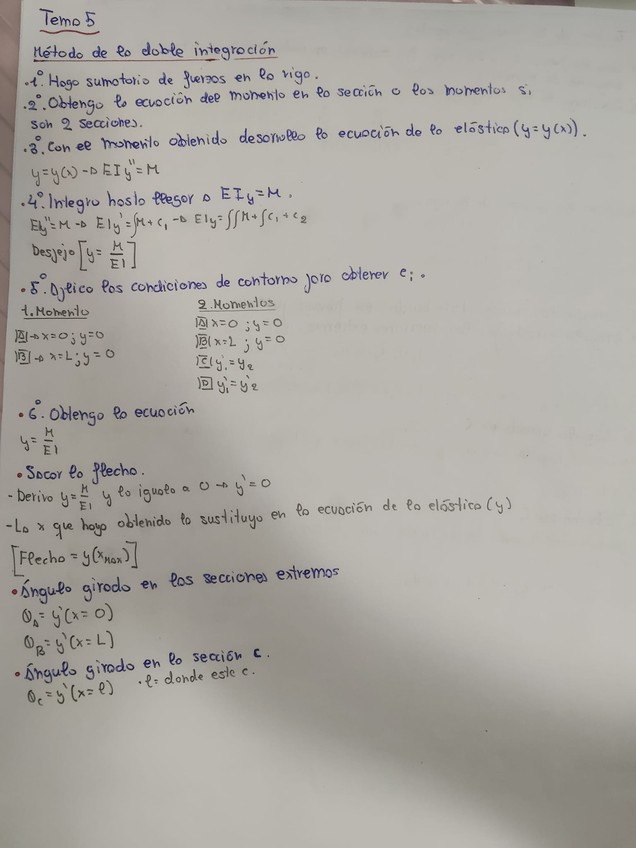 Tema 5
Método de la doble integración
• 1º. Hago sumatorio de fuerzas en la viga.
• 2º. Obtengo la ecuación del momento en la sección o los momentos si
son 2 secciones.
• 3º. Con el momento obtenido desarrollo la ecuación de la elástica (y=y(x)).
y=y(x) → EIy''=M
• 4º. Integro hasta llegar a EIy=M.
EIy''=M → EIy'=∫M+c₁ → EIy=∫∫M+∫c₁+c₂
Despejo [y=M/EI]
• 5º. Aplico las condiciones de contorno para obtener cᵢ.
1. Momento
A → x=0; y=0
B → x=L; y=0
2. Momentos
A) x=0; y=0
B) x=L; y=0
C) y₁=y₂
D) y'₁=y'₂
• 6º. Obtengo la ecuación
y=M/EI
• Sacar la flecha.
- Derivo y=M/EI y lo igualo a 0 → y'=0
- La x que haya obtenido la sustituyo en la ecuación de la elástica (y)
[Flecha = y(xMax)]
• Ángulo girado en las secciones extremos
θA=y'(x=0)
θB=y'(x=L)
• Ángulo girado en la sección c.
θc=y'(x=l) • l= donde este c.